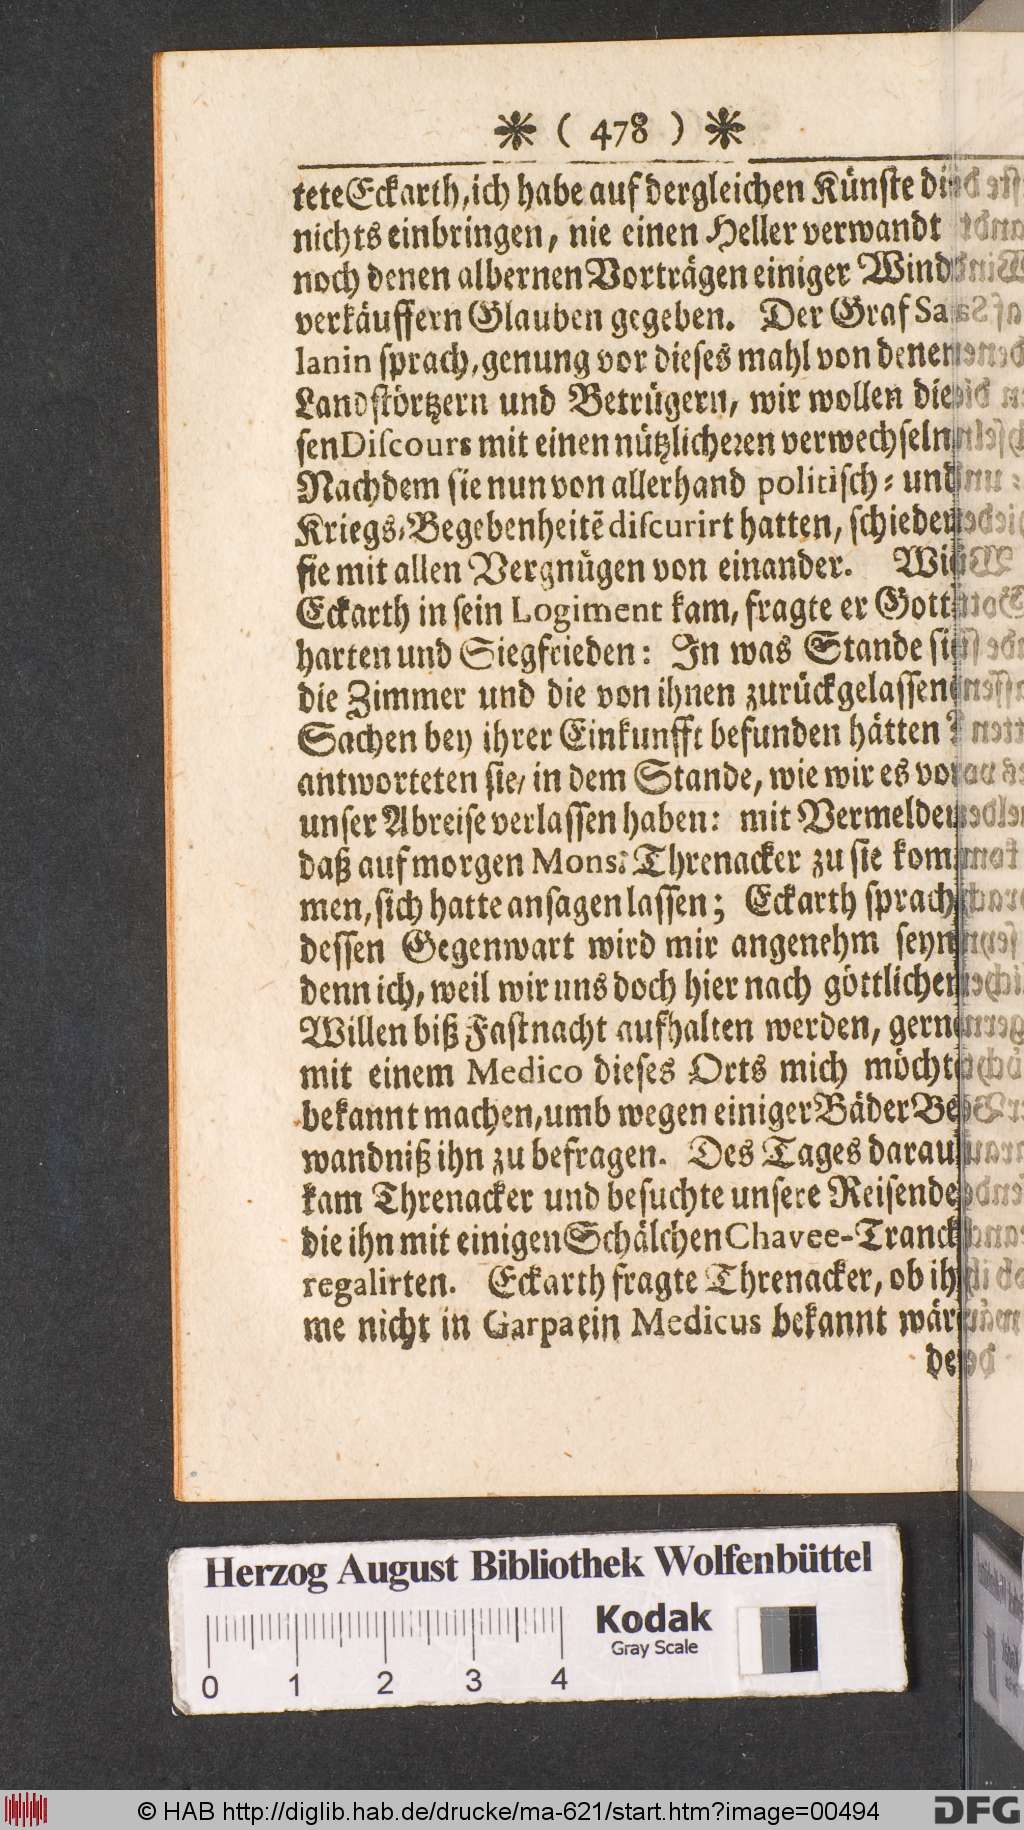 ❋ ( 478 ) ❋
tete Eckarth, ich habe auf dergleichen Künste die
nichts einbringen, nie einen Heller verwandt
noch denen albernen Vorträgen einiger Wind
verkäuffern Glauben gegeben. Der Graf Sa
lanin sprach, genung vor dieses mahl von denen
Landstörtzern und Betrügern, wir wollen die
sen Discours mit einen nützlicheren verwechseln
Nachdem sie nun von allerhand politisch- und
Kriegs-Begebenheitē discurirt hatten, schieden
sie mit allen Vergnügen von einander. Wie
Eckarth in sein Logiment kam, fragte er Gott
harten und Siegfrieden: In was Stande sie
die Zimmer und die von ihnen zurückgelassene
Sachen bey ihrer Einkunfft befunden hätten?
antworteten sie, in dem Stande, wie wir es vor
unser Abreise verlassen haben: mit Vermelden
daß auf morgen Mons. Threnacker zu sie kom
men, sich hatte ansagen lassen; Eckarth sprach
dessen Gegenwart wird mir angenehm seyn
denn ich, weil wir uns doch hier nach göttlichen
Willen biß Fastnacht aufhalten werden, gerne
mit einem Medico dieses Orts mich möchte
bekannt machen, umb wegen einiger Bäder Be
wandniß ihn zu befragen. Des Tages darauf
kam Threnacker und besuchte unsere Reisende
die ihn mit einigen Schälchen Chavee-Tranck
regalirten. Eckarth fragte Threnacker, ob ih
me nicht in Garpa ein Medicus bekannt wäre
der
Herzog August Bibliothek Wolfenbüttel
Kodak
Gray Scale
0 1 2 3 4
© HAB http://diglib.hab.de/drucke/ma-621/start.htm?image=00494
DFG